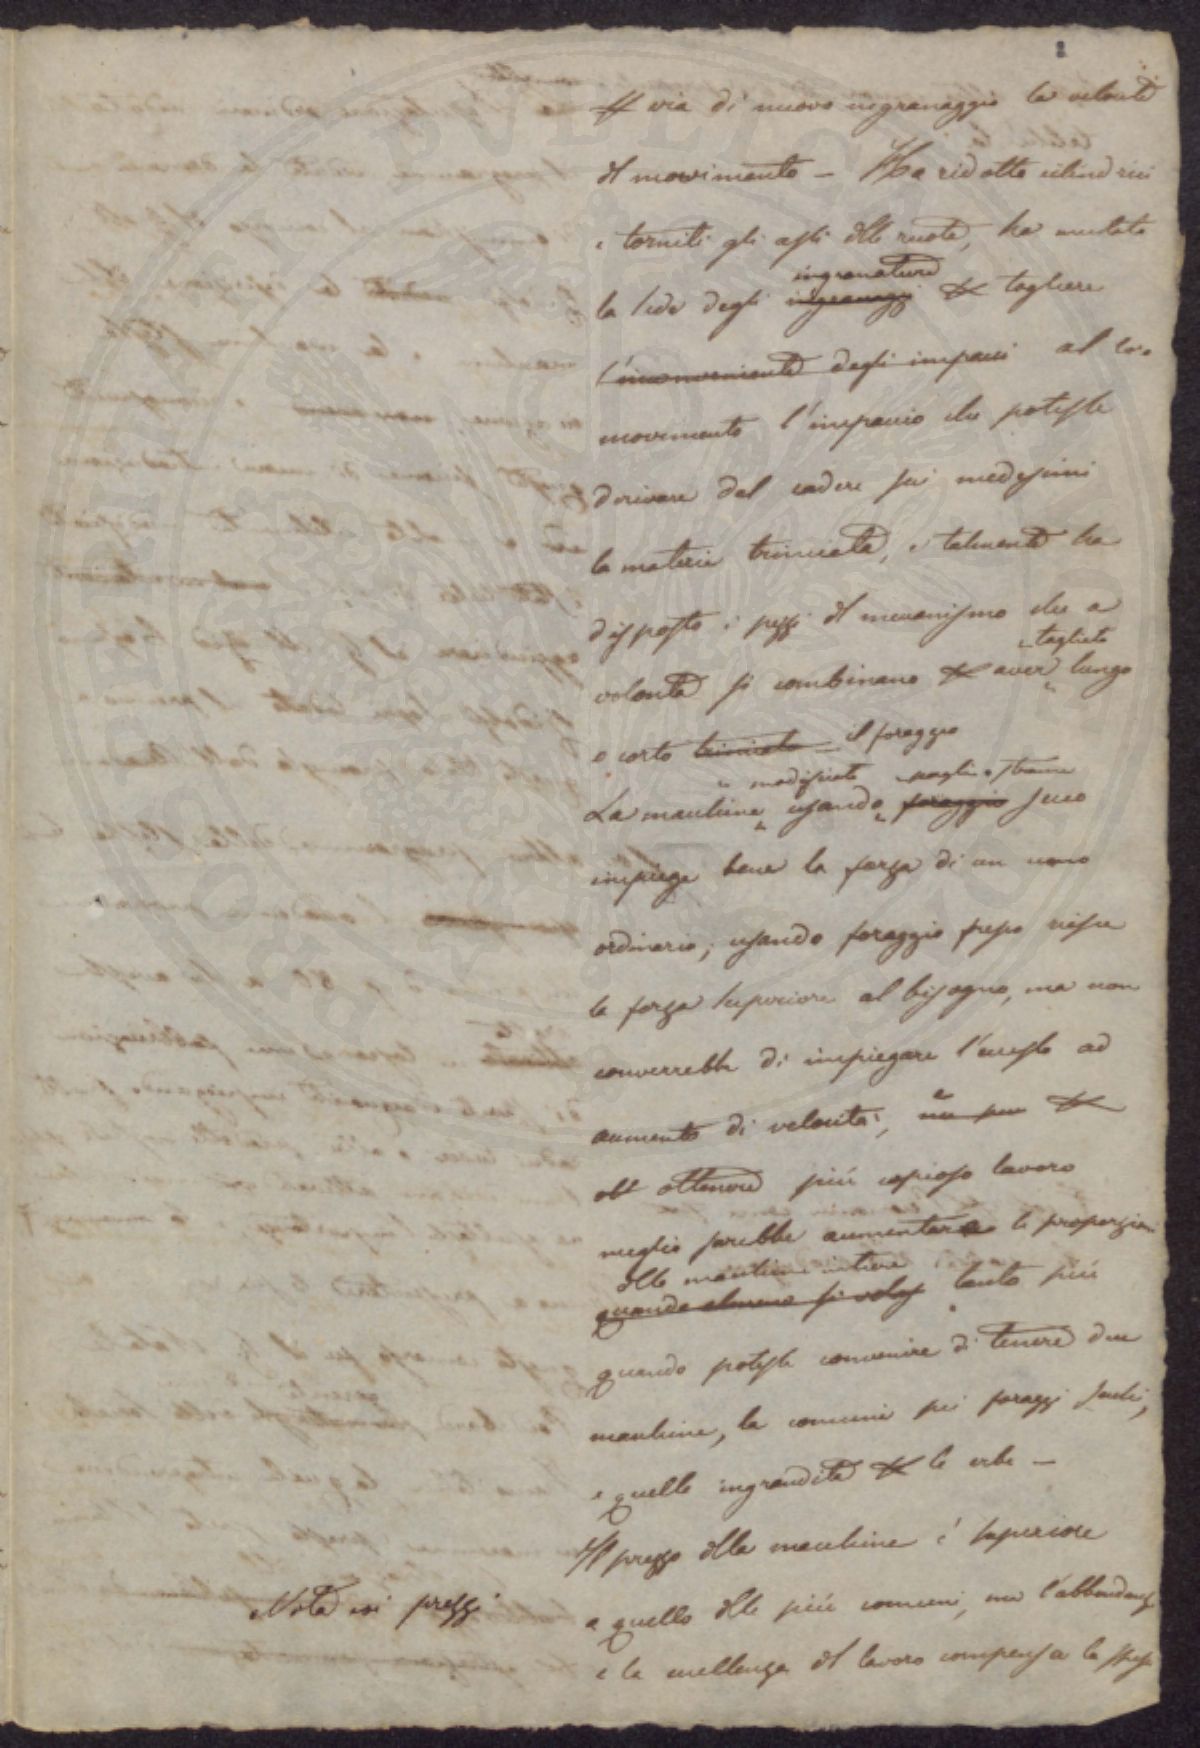 2
p via di nuovo ingranaggio la velocità
del movimento — Ha ridotto cilindrici
e torniti gli assi delle ruote, ha mutato
ingranature
la sede degli ingranaggi p tagliere
l'inconveniente degli impacci al loro
movimento l'impaccio che potesse
derivare dal cadere sui medesimi
la materia trinciata, e talmente ha
disposto i pezzi del meccanismo che a
tagliato
volontà si combinano p aver lungo
o corto trinciato il foraggio
modificata paglia e strame
La macchina usando foraggio secco
impiega bene la forza di un uomo
ordinario; usando foraggio fresco riesce
la forza superiore al bisogno, ma non
converrebbe di impiegare l'eccesso ad
e
aumento di velocità, ne per p
obt ottenere più copioso lavoro
meglio sarebbe aumentare le proporzioni
delle macchine intiere
quando almeno si voless tanto più
quando potesse convenire di tenere due
macchine, la comune pei foraggi secchi,
e quella ingrandita p le erbe —
Il prezzo della macchina è superiore
Nota coi prezzi
a quello delle più comuni, ma l'abbondanza
e la eccellenza del lavoro compensa la spesa